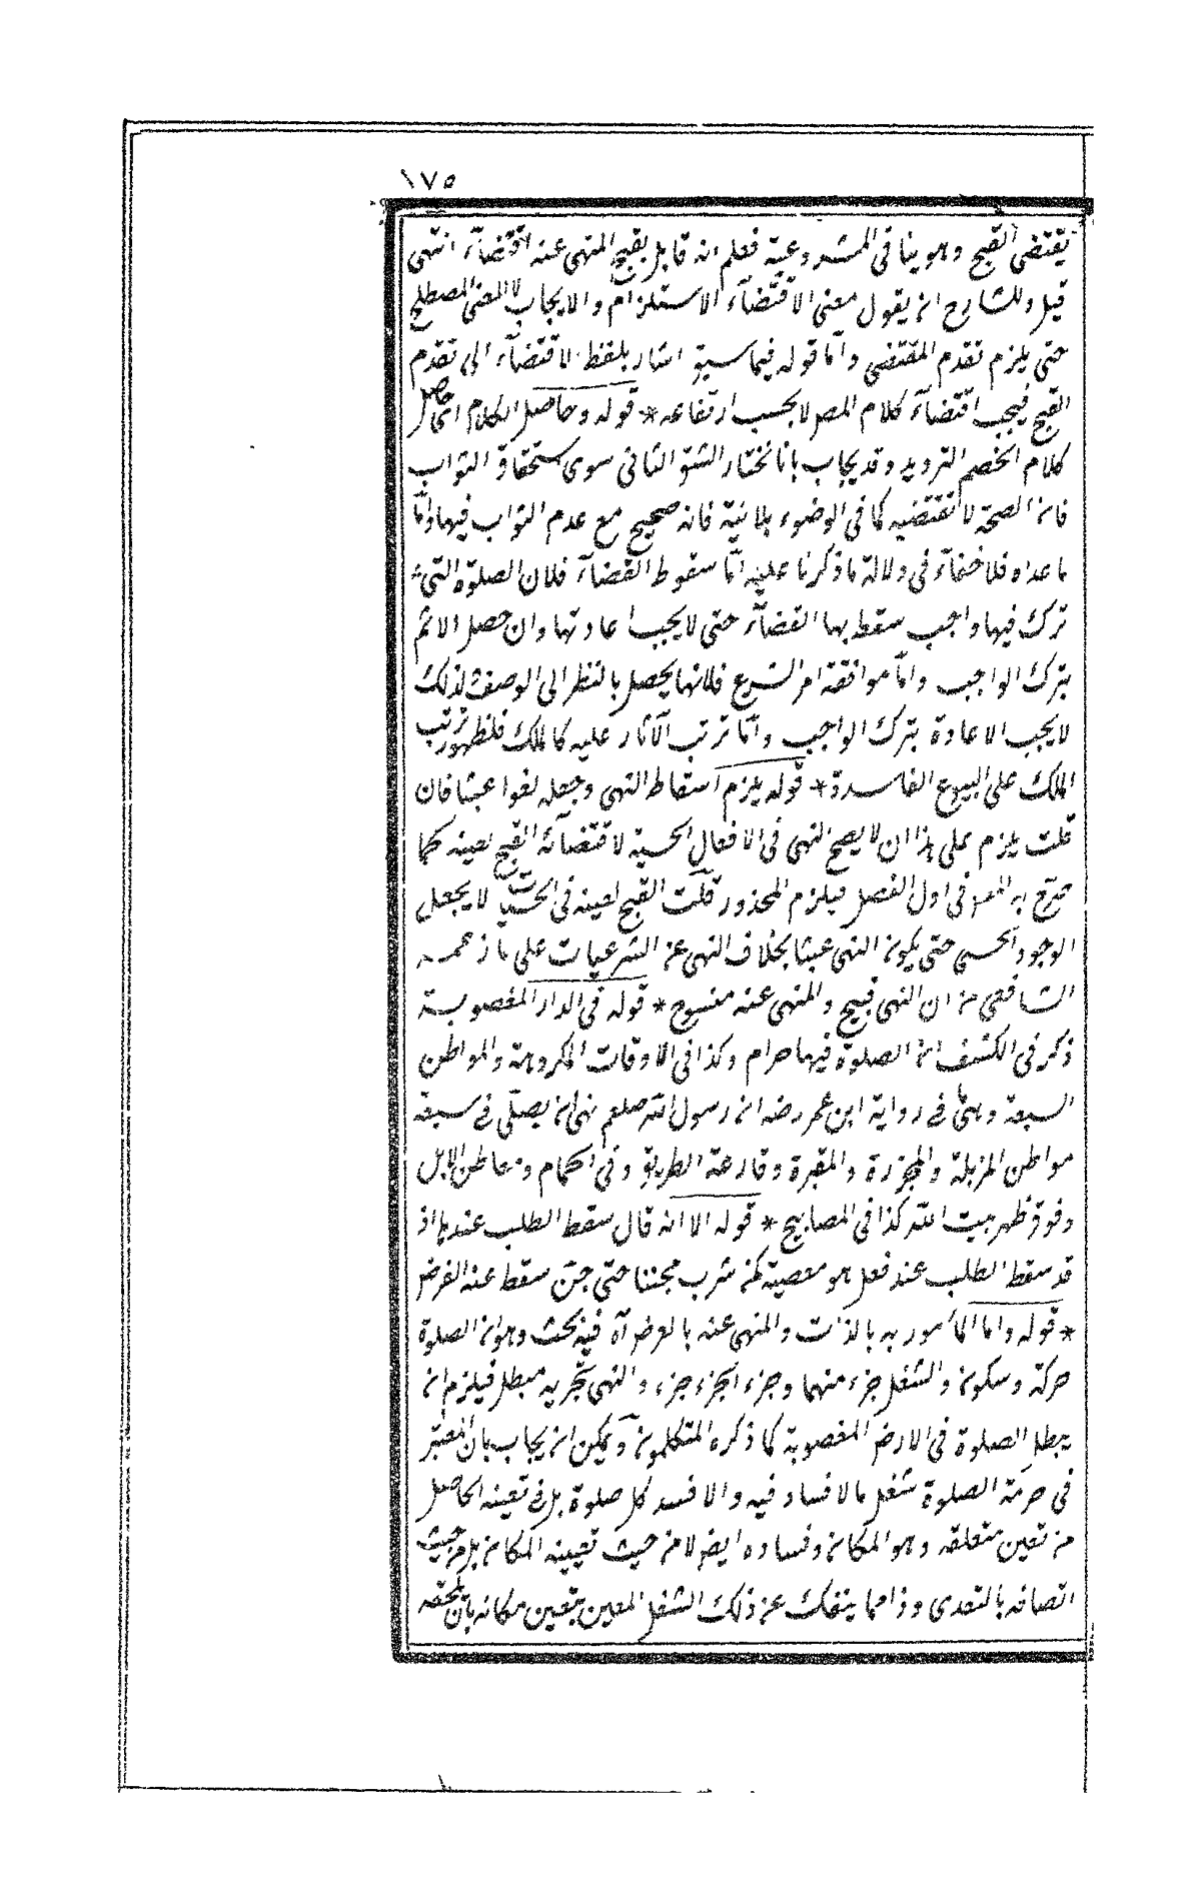 ١٧٥
يقتضى القبح وهو ينافى المشروعية فعلم انه قابل بقبح المنهى عنه اقتضآء انتهى
قيل وللشارح ان يقول معنى الاقتضآء الاستلزام والايجاب لا المعنى المصطلح
حتى يلزم تقدم المقتضى واما قوله فيما سبق اشار بلفظ الاقتضآء الى تقدم
القبح فيجب اقتضآء كلام المص لا بحسب ارتفاعه * قوله وحاصل الكلام اى حاصل
كلام الخصم الترديد وقد يجاب بانا نختار الشق الثانى سوى استحقاق الثواب
فان الصحة لا تقتضيه كما فى الوضوء بلا نية فانه صحيح مع عدم الثواب فيها واما
ما عداه فلا خفآء فى دلالة ما ذكرنا عليه اما سقوط القضآء فلان الصلوة التى
ترك فيها واجب سقط بها القضآء حتى لا يجب اعادتها وان حصل الاثم
بترك الواجب واما موافقة امر الشرع فلانها يحصل بالنظر الى الوصف لذلك
لا يجب الاعادة بترك الواجب واما ترتب الآثار عليه كالملك فلظهور ترتب
الملك على البيوع الفاسدة * قوله يلزم اسقاط النهى وجعله لغوا عبثا فان
قلت يلزم على هذا ان لا يصح النهى فى الافعال الحسية لاقتضآئه القبح لعينه كما
صرح به المص فى اول الفصل فيلزم المحذور قلت القبح لعينه فى الحسيات لا يجعل
الوجود الحسى حتى يكون النهى عبثا بخلاف النهى عن الشرعيات على ما زعمه
الشافعى من ان النهى قبيح والمنهى عنه منسوخ * قوله فى الدار المغصوبة
ذكر فى الكشف ان الصلوة فيها حرام وكذا فى الاوقات المكروهة والمواطن
السبعة وهى فى رواية ابن عمر رضه ان رسول الله صلعم نهى ان يصلى فى سبعة
مواطن المزبلة والمجزرة والمقبرة وقارعة الطريق وفى الحمام ومعاطن الابل
وفوق ظهر بيت الله كذا فى المصابيح * قوله الا انه قال سقط الطلب عندها اذ
قد سقط الطلب عند فعل هو معصية كمن شرب مجننا حتى جن سقط عنه الفرض
* قوله واما المأمور به بالذات والمنهى عنه بالعرض آه فيه بحث وهو ان الصلوة
حركة وسكون والشغل جزء منهما وجزء الجزء جزء والنهى تجزيه مبطل فيلزم ان
يبطل الصلوة فى الارض المغصوبة كما ذكره المتكلمون ويمكن ان يجاب بان المعتبر
فى حرمة الصلوة شغل ما لا فساد فيه والا فسد كل صلوة بل فى تعينه الحاصل
من تعين متعلقه وهو المكان وفساده ايضا لا من حيث تعيينه المكان بل من حيث
اتصافه بالتعدى وذا مما ينفك عن ذلك الشغل المعين بتعين مكانه بان يلحقه